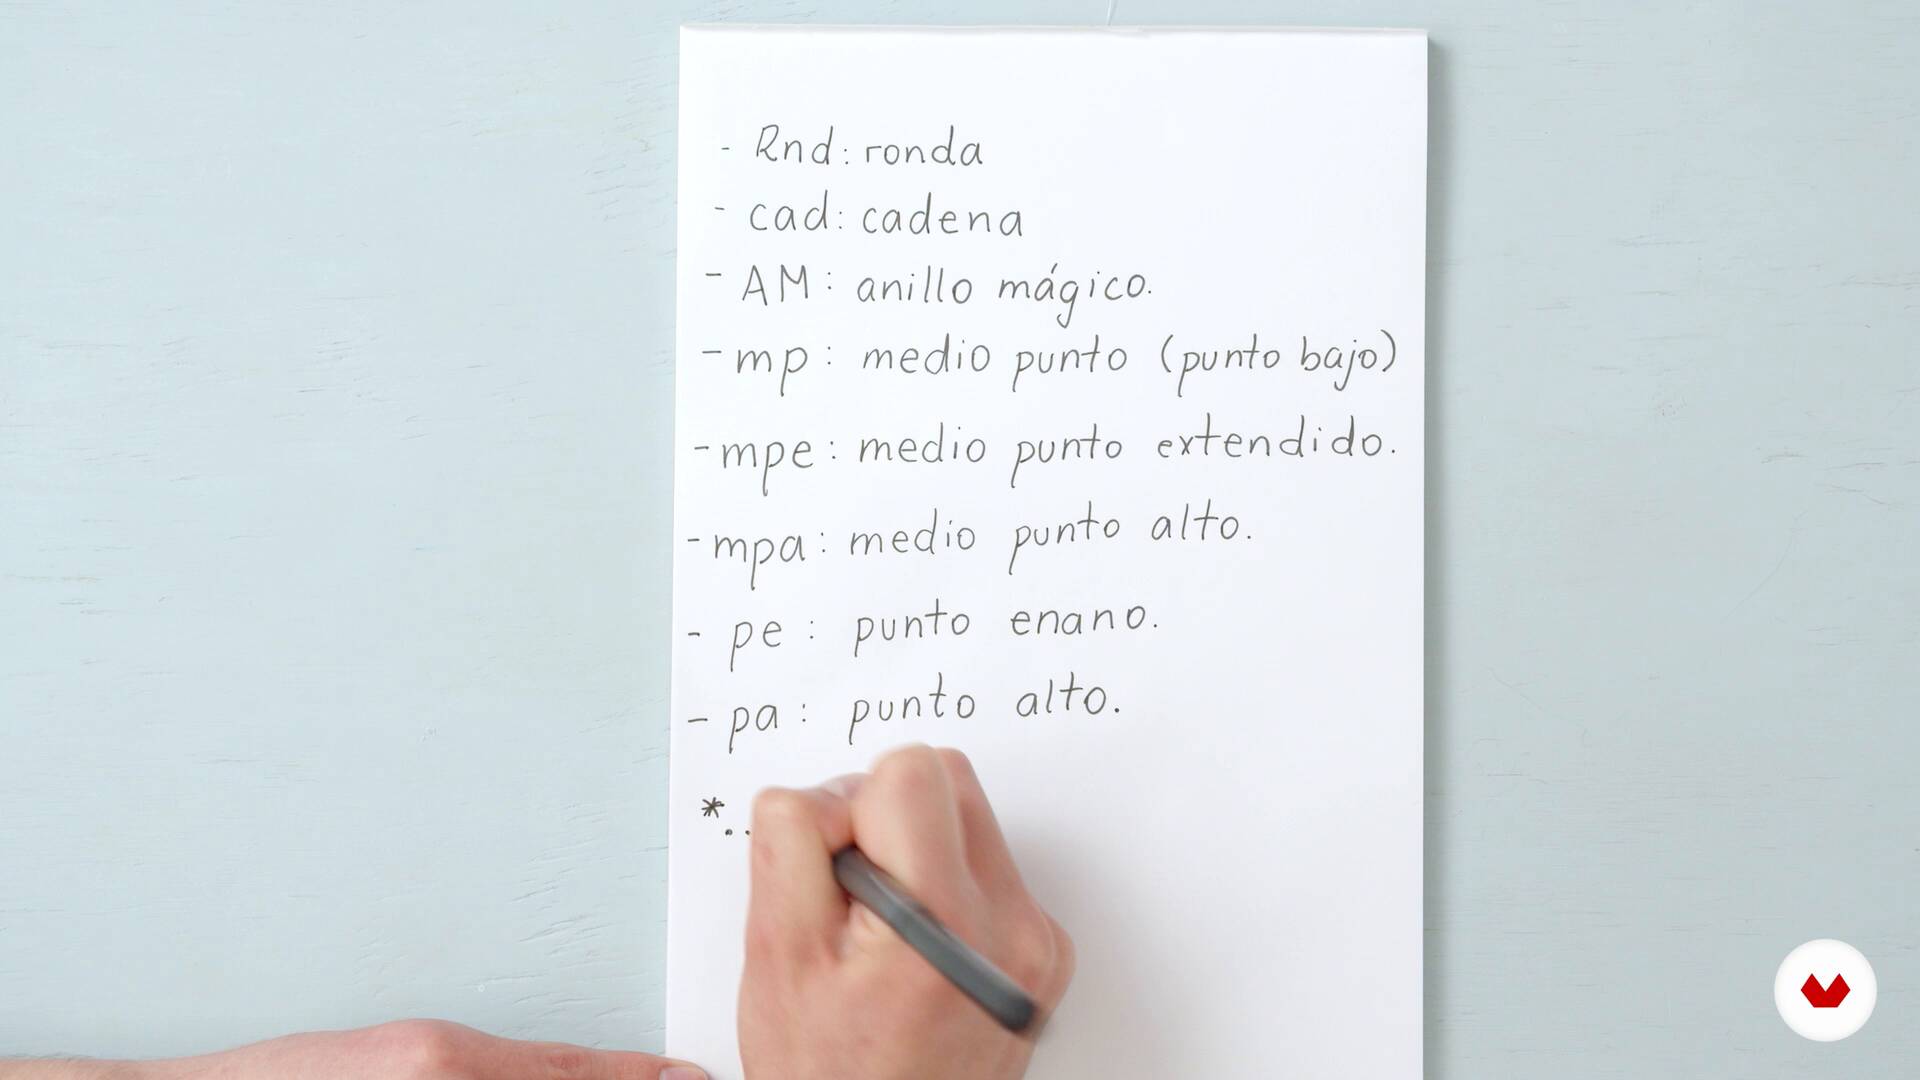 - Rnd: ronda
- cad: cadena
- AM: anillo mágico.
- mp: medio punto (punto bajo)
- mpe: medio punto extendido.
- mpa: medio punto alto.
- pe: punto enano.
- pa: punto alto.
*..